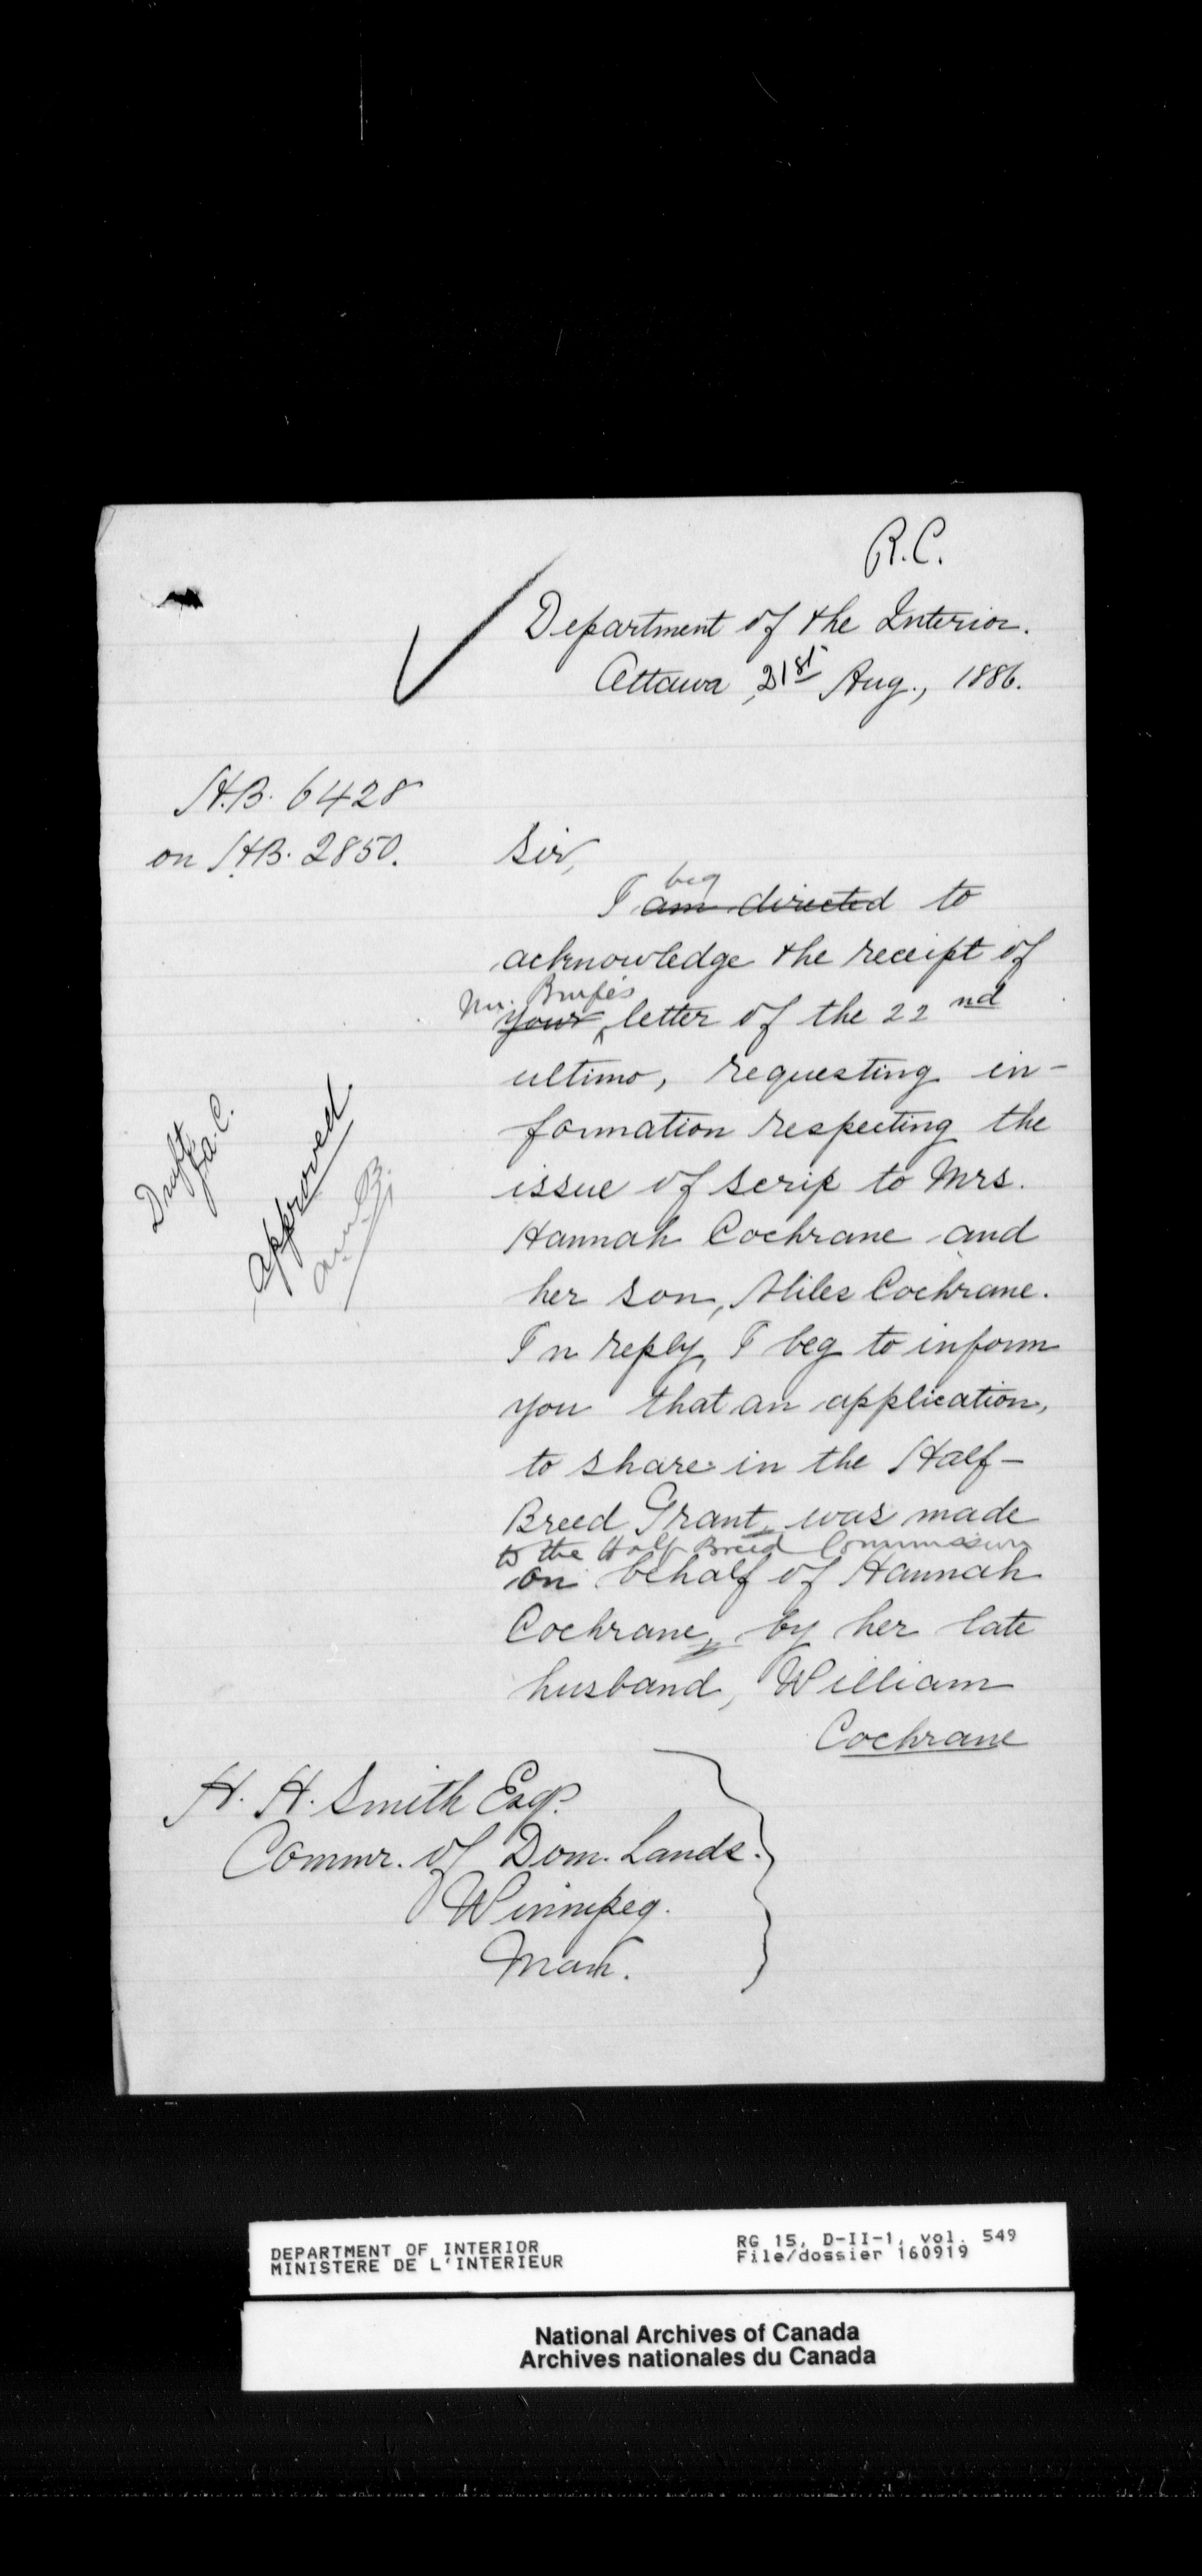 R.C.
Department of the Interior.
Ottawa, 21st Aug., 1886.
H.B. 6428
on H.B. 2850.
Sir,
beg
I am directed to
acknowledge the receipt of
Mr.
your letter of the 22nd
ultimo, requesting in-
formation respecting the
issue of scrip to Mrs.
Hannah Cochrane and
her son, Miles Cochrane.
In reply, I beg to inform
you that an application,
to share in the Half-
Breed Grant, was made
to the Half Breed Commission
on behalf of Hannah
Cochrane, by her late
husband, William
Cochrane
Draft
J.A.C.
Approved.
H. H. Smith Esq.
Commr. of Dom. Lands.
Winnipeg.
Man.
DEPARTMENT OF INTERIOR
MINISTERE DE L'INTERIEUR
RG 15, D-II-1, vol. 549
File/dossier 160919
National Archives of Canada
Archives nationales du Canada